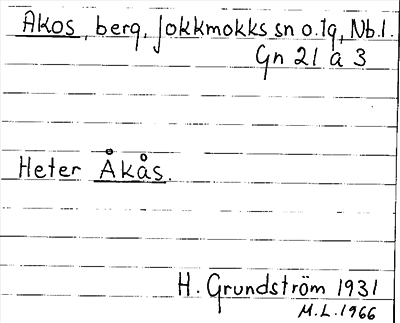 Akos, berg, Jokkmokks sn o. tg, Nb. l.
Gn 21 a 3
Heter Åkås.
H. Grundström 1931
M.L. 1966